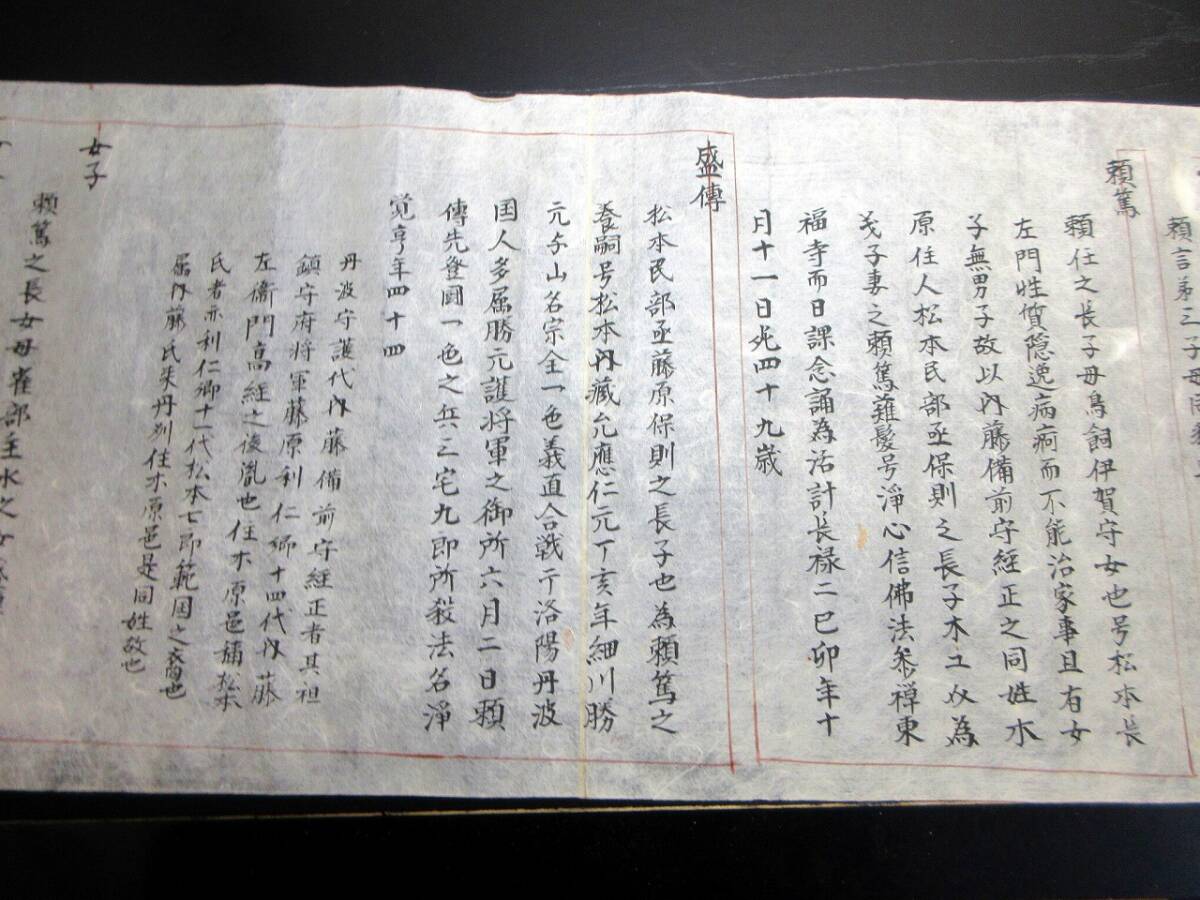 頼言弟三子母同
頼篤
頼任之長子母鳥飼伊賀守女也号松本長
左門性質隠逸病痾而不能治家事且有女
子無男子故以内藤備前守経正之同姓木
原住人松本民部丞保則之長子木工以為
義子妻之頼篤薙髪号淨心信佛法参禅東
福寺而日課念誦為活計長禄二己卯年十
月十一日死四十九歳
盛傳
松本民部丞藤原保則之長子也為頼篤之
養嗣号松本内蔵允應仁元丁亥年細川勝
元与山名宗全一色義直合戦于洛陽丹波
国人多属勝元護将軍之御所六月二日頼
傳先登圍一色之兵三宅九郎所殺法名淨
覚亨年四十四
丹波守護代内藤備前守経正者其祖
鎮守府将軍藤原利仁郷十四代内藤
左衛門高経之後胤也住木原邑稱松本
氏者亦利仁郷十一代松本七郎範国之裔也
属内藤氏来丹列住木原邑是同姓故也
女子
頼篤之長女母雀部主水之女